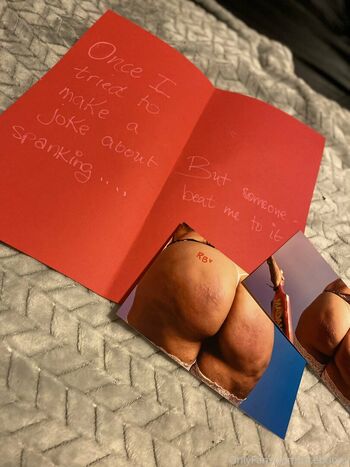 Once I
tried to
make a
joke about
spanking....
But someone
beat me to it
RB